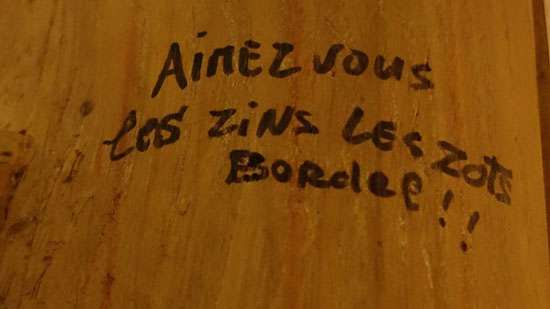 AiMEZ vous
les ZiNS LES ZOTS
Bordel!!